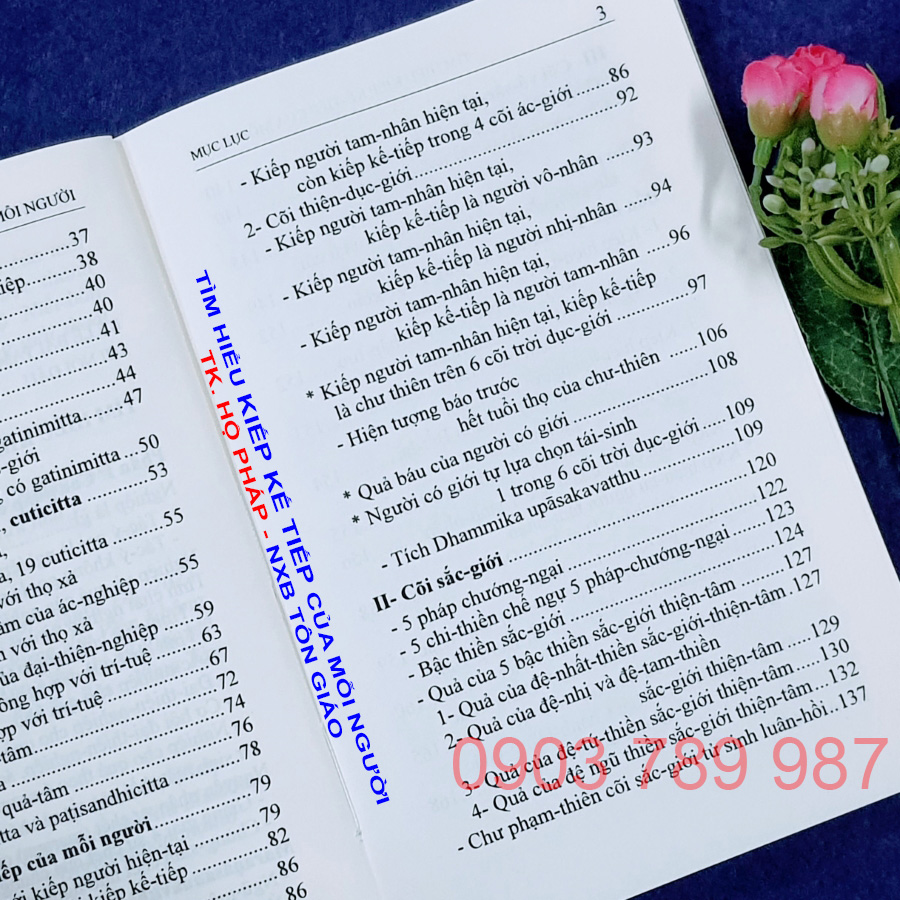 MỖI NGƯỜI
37
iệp.....38
40
40
41
43
44
gatinimitta.....47
-giới
có gatinimitta.....50
, cuticitta.....53
a, 19 cuticitta.....55
với thọ xả
âm của ác-nghiệp.....55
n với thọ xả
ủa đại-thiện-nghiệp.....59
ồng hợp với trí-tuệ.....63
ợp với trí-tuệ.....67
72
tâm.....74
76
quả-tâm.....78
tta và paṭisandhicitta
79
iếp của mỗi người
ới kiếp người hiện-tại.....79
kiếp kế-tiếp.....82
86
86
MỤC LỤC 3
- Kiếp người tam-nhân hiện tại,
còn kiếp kế-tiếp trong 4 cõi ác-giới ......86
2- Cõi thiện-dục-giới.....92
- Kiếp người tam-nhân hiện tại,
kiếp kế-tiếp là người vô-nhân .....93
- Kiếp người tam-nhân hiện tại,
kiếp kế-tiếp là người nhị-nhân .....94
- Kiếp người tam-nhân hiện tại,
kiếp kế-tiếp là người tam-nhân .....96
* Kiếp người tam-nhân hiện tại, kiếp kế-tiếp
là chư thiên trên 6 cõi trời dục-giới .....97
- Hiện tượng báo trước
hết tuổi thọ của chư-thiên ......106
* Quả báu của người có giới .....108
* Người có giới tự lựa chọn tái-sinh
1 trong 6 cõi trời dục-giới.....109
- Tích Dhammika upāsakavatthu.....109
II- Cõi sắc-giới.....120
- 5 pháp chướng-ngại.....122
- 5 chi-thiền chế ngự 5 pháp-chướng-ngại .....123
- Bậc thiền sắc-giới.....124
- Quả của 5 bậc thiền sắc-giới thiện-tâm.....127
1- Quả của đệ-nhất-thiền sắc-giới-thiện-tâm.127
2- Quả của đệ-nhị và đệ-tam-thiền
sắc-giới thiện-tâm.....129
3- Quả của đệ-tứ-thiền sắc-giới thiện-tâm.....130
4- Quả của đệ ngũ thiền sắc-giới thiện-tâm...132
- Chư phạm-thiên cõi sắc-giới tử sinh luân-hồi..137
TÌM HIỂU KIẾP KẾ TIẾP CỦA MỖI NGƯỜI
TK. HỘ PHÁP - NXB TÔN GIÁO
0903 789 987